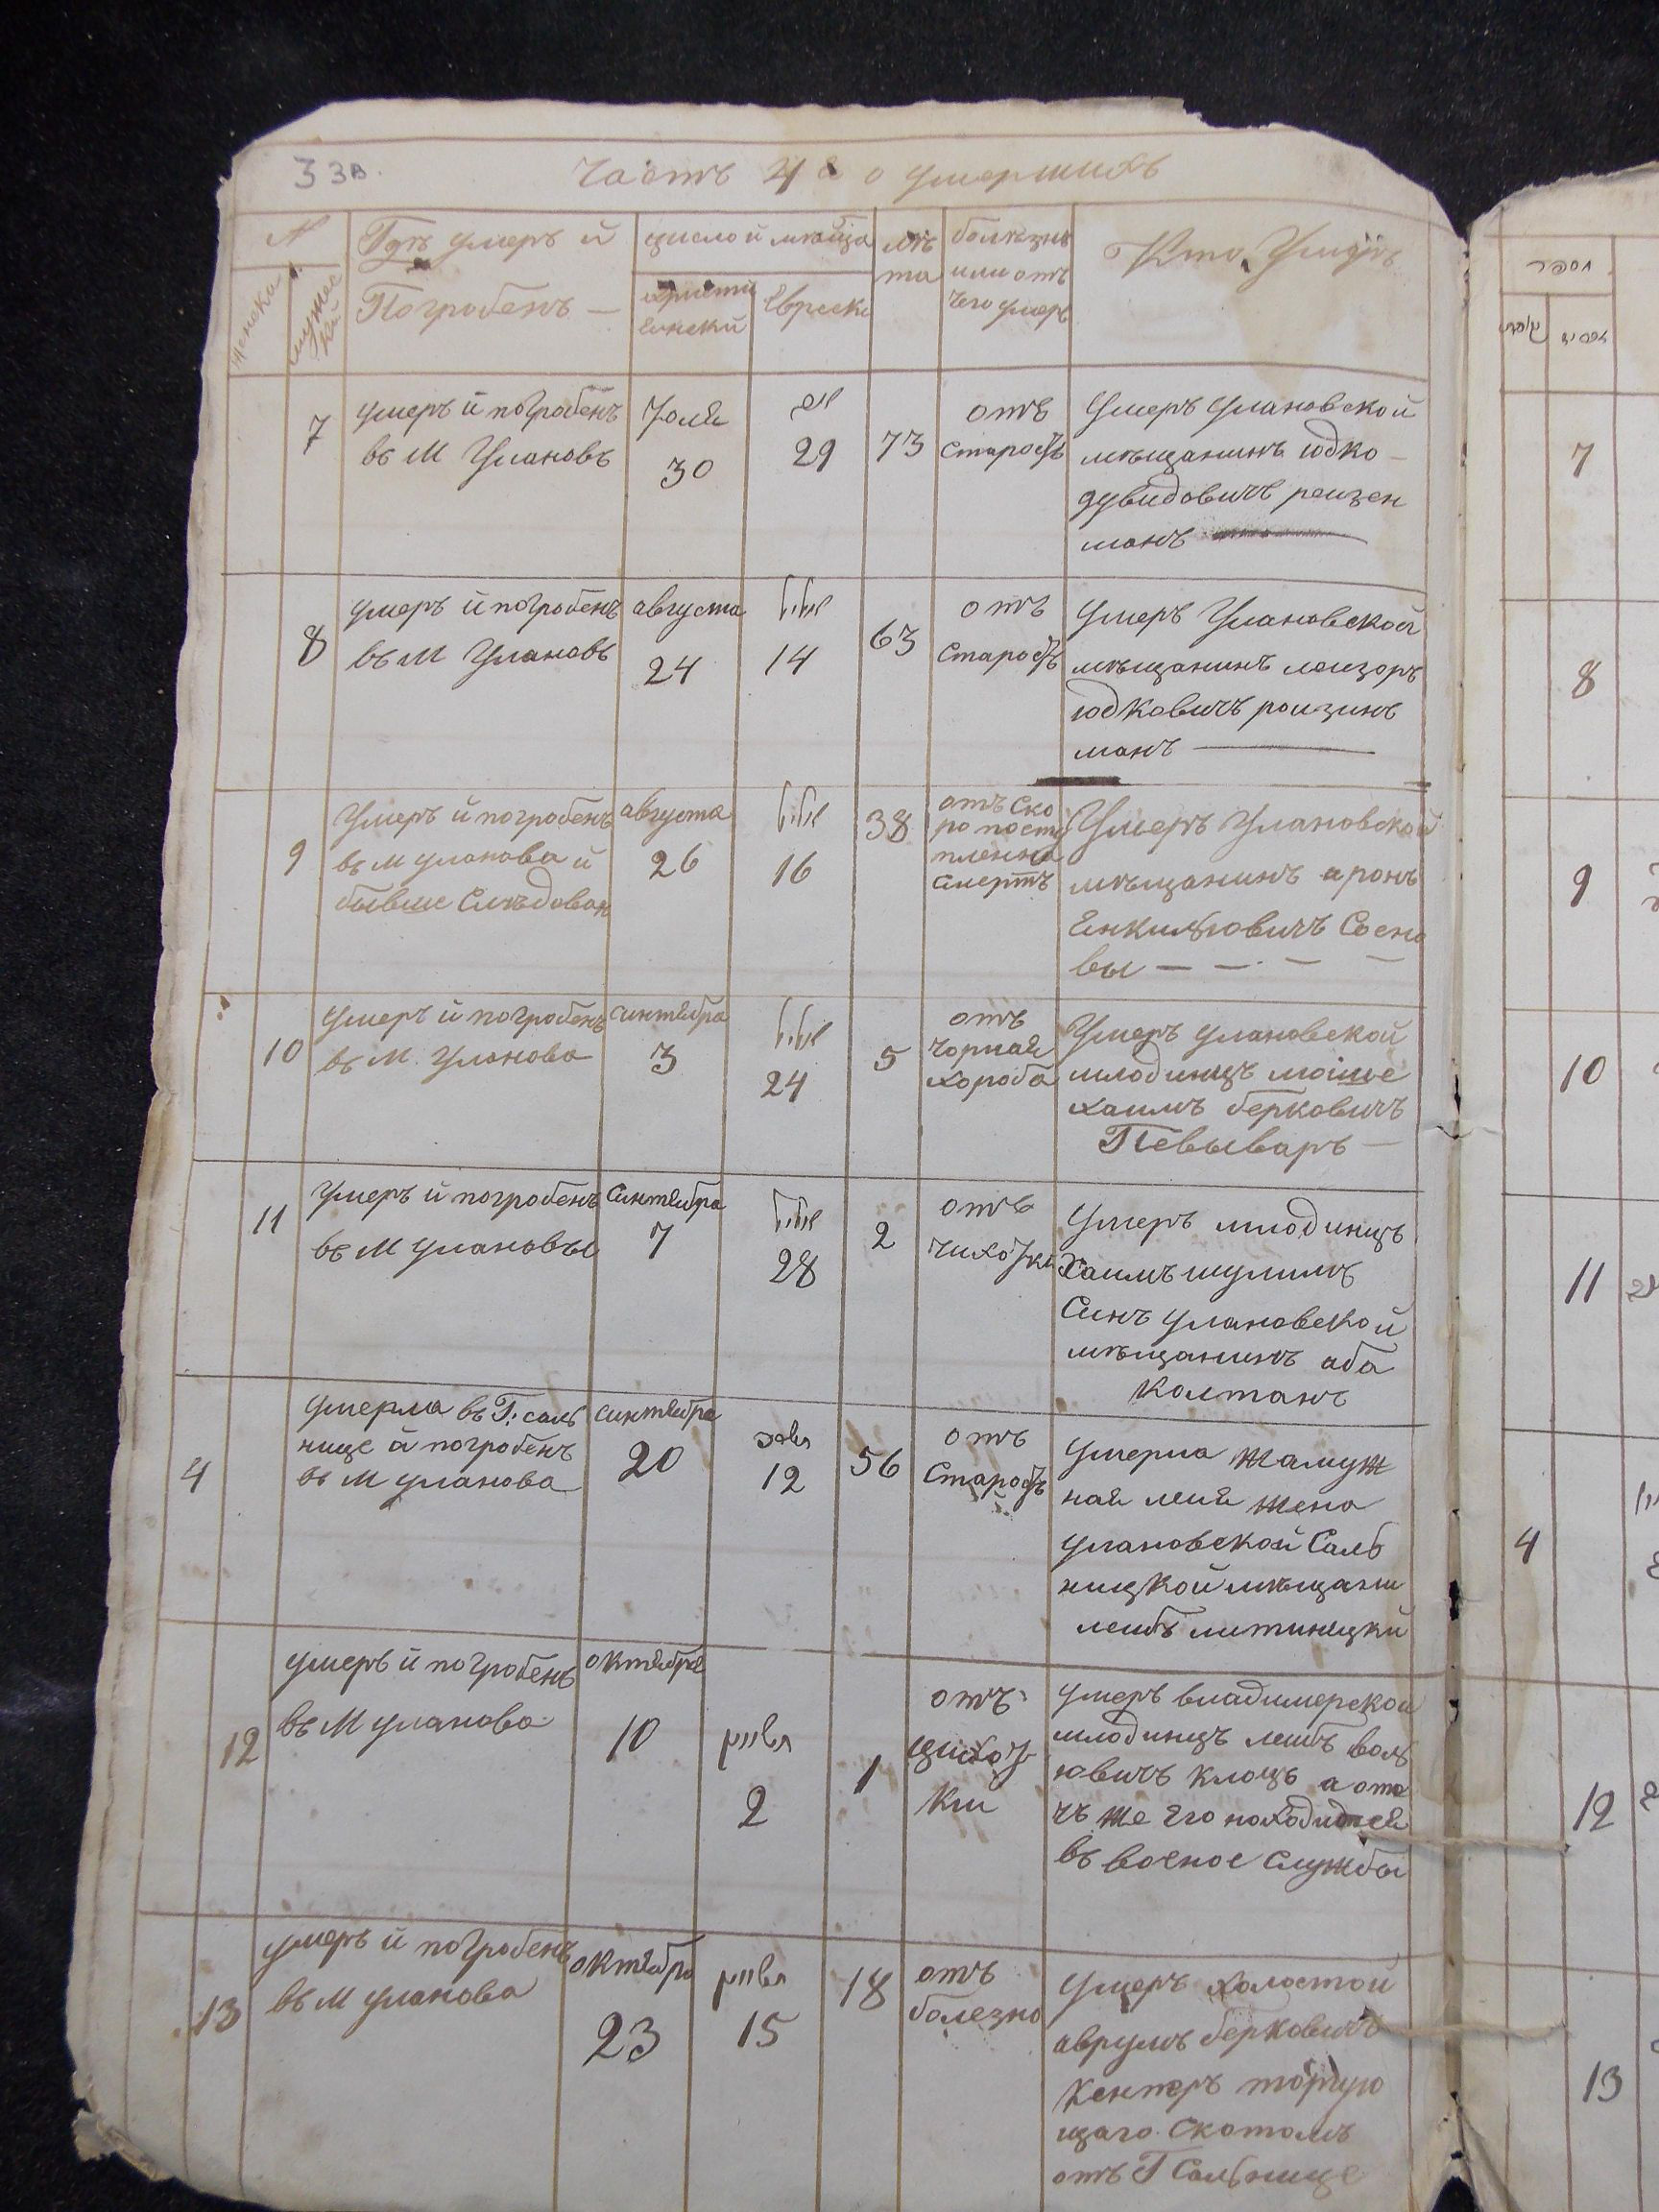 33в.
Часть 4я о умершихъ
№
Гдѣ умеръ й
Погробенъ —
женска
мужес
кай
число й мѣсца
христи
енскй
Еврески
лѣ
та
болѣзнь
или отъ
чего умеръ
Кто Умеръ
7
умеръ й погробенъ
въ М Улановъ
Юоля
30
אב
29
73
отъ
старость
Умеръ Улановской
мѣщанинъ юдко
дувидовичъ рейзен
манъ
8
умеръ й погробенъ
въ М Улановъ
августа
24
אלול
14
63
отъ
старость
Умеръ Улановской
мѣщанинъ лейзоръ
юдковичъ роизин
манъ
9
Умеръ й погробенъ
въ М уланова й
бывше Слѣдован
августа
26
אלול
16
38
отъ Ско
ропости
пленна
смерть
Умеръ Улановской
мѣщанинъ аронъ
Енкилювичъ Сосно
вы — — — —
10
умеръ й погробенъ
въ М. Уланова
синтября
3
אלול
24
5
отъ
чорная
хороба
Умеръ улановской
млодинцъ моише
хаимъ берковичъ
Певываръ —
11
умеръ й погробенъ
въ М улановы
синтября
7
אלול
28
2
отъ
чихотки
Умеръ млодинцъ
Хаимъ шулимъ
Синъ улановской
мѣщанинъ аба
Колтанъ
4
умерла въ Г: саль
нице й погробенъ
въ М уланова
синтября
20
תשרי
12
56
отъ
Старость
умерла жамуж
ная лейя жена
улановской Саль
ницкой мѣщани
лейбъ литинецкй
12
умеръ й погробенъ
въ М уланова
октября
10
חשון
2
1
отъ
цихот
ки
умеръ владимерской
млодинцъ лейбъ воль
ювичъ клоцъ а оте
чъ же его находится
въ военое службы
13
умеръ й погробенъ
въ М уланова
октября
23
חשון
15
18
отъ
болезно
Умеръ холостой
аврумъ берковичъ
Кентеръ торгую
щаго Скотомъ
отъ Г Сальнице
7
8
9
10
11
4
12
13